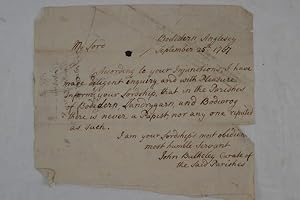 Bodedern Anglesey
September 25th 1767
My Lord
According to your Injunctions, I have
made diligent enquiry and with Pleasure
Inform your Lordship, that in the Parishes
of Bodedern Llandrygarn, and Bodwrog
there is never a Papist nor any one reputed
as such.
I am your Lordships most obedien
most humble Servant
John Bulkeley Curate of
the Said Parishes